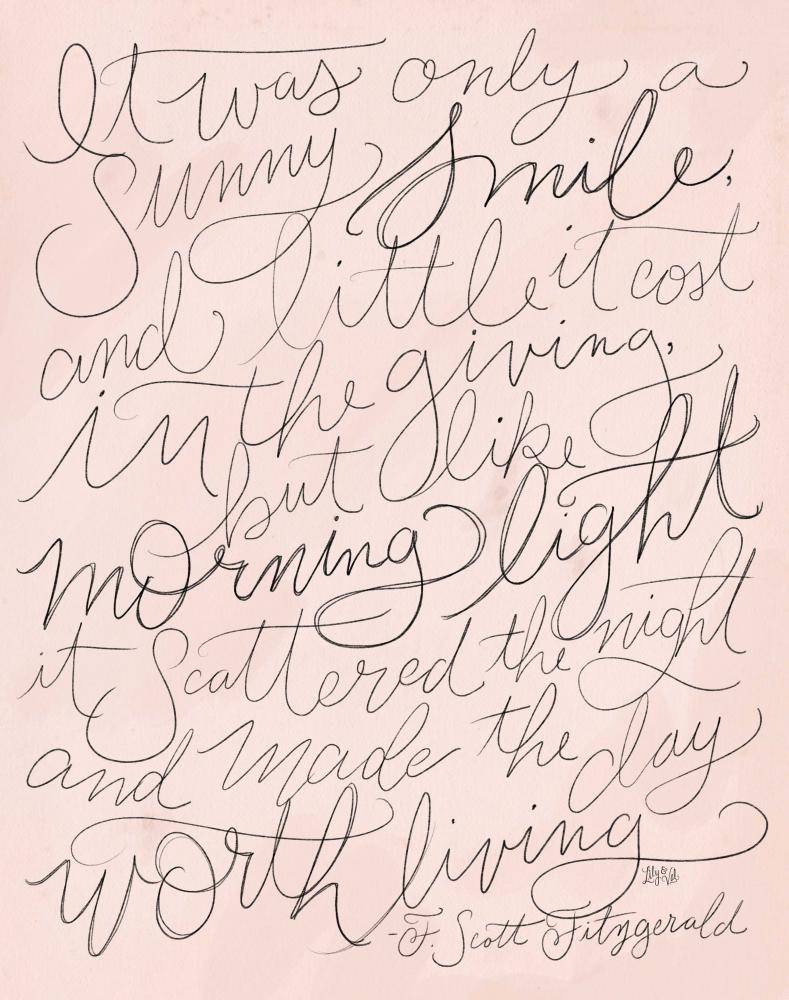 It was only a
Sunny Smile,
and little it cost
in the giving,
but like
morning light
it Scattered the night
and made the day
worth living
Lily & Val
-F. Scott Fitzgerald